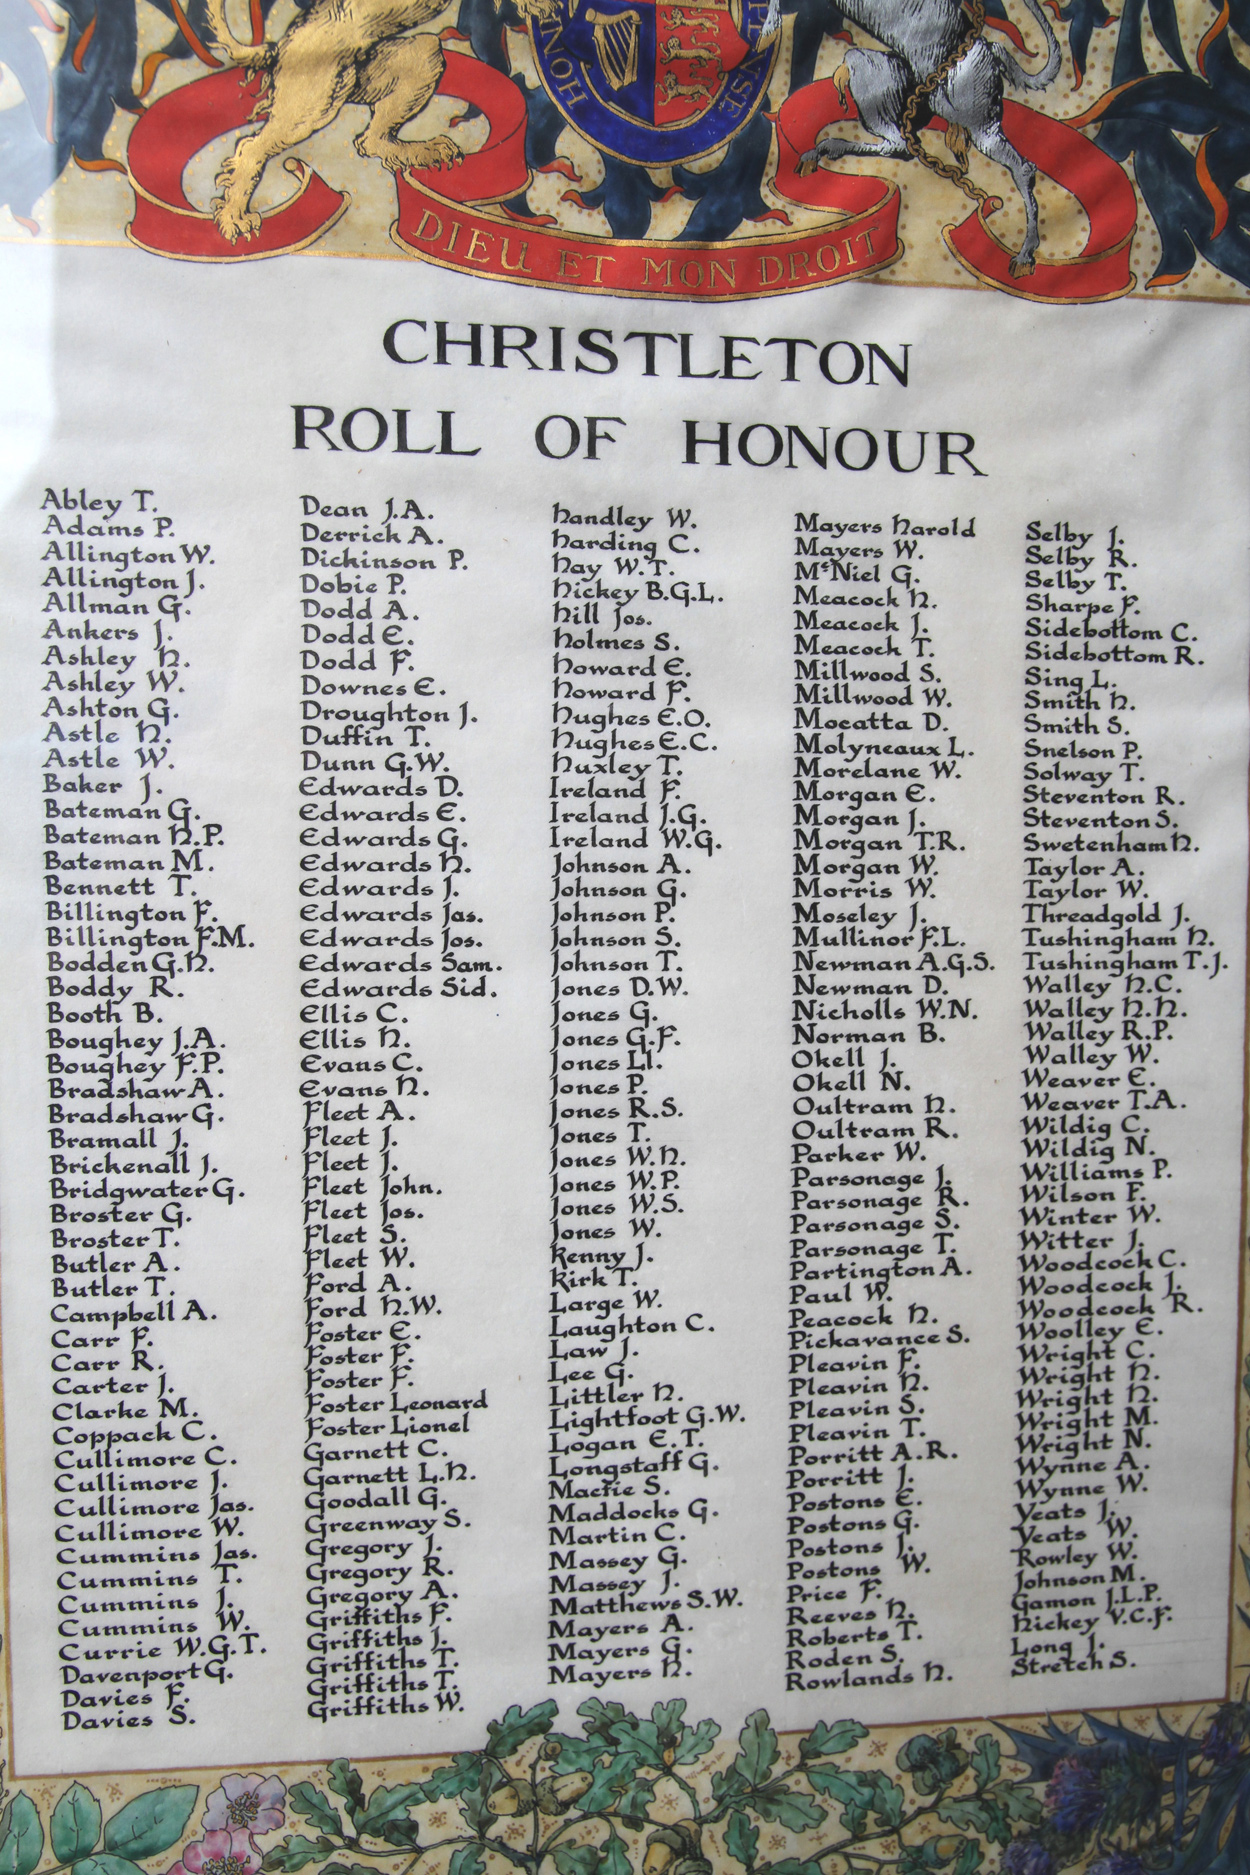 HONI
DIEU ET MON DROIT
CHRISTLETON
ROLL OF HONOUR
Abley T.
Adams P.
Allington W.
Allington J.
Allman G.
Ankers J.
Ashley H.
Ashley W.
Ashton G.
Astle H.
Astle W.
Baker J.
Bateman G.
Bateman H.P.
Bateman M.
Bennett T.
Billington F.
Billington F.M.
Bodden G.H.
Boddy R.
Booth B.
Boughey J.A.
Boughey F.P.
Bradshaw A.
Bradshaw G.
Bramall J.
Brickenall J.
Bridgwater G.
Broster G.
Broster T.
Butler A.
Butler T.
Campbell A.
Carr F.
Carr R.
Carter J.
Clarke M.
Coppack C.
Cullimore C.
Cullimore J.
Cullimore Jas.
Cullimore W.
Cummins Jas.
Cummins T.
Cummins J.
Cummins W.
Currie W.G.T.
Davenport G.
Davies F.
Davies S.
Dean J.A.
Derrick A.
Dickinson P.
Dobie P.
Dodd A.
Dodd E.
Dodd F.
Downes E.
Droughton J.
Duffin T.
Dunn G.W.
Edwards D.
Edwards E.
Edwards G.
Edwards H.
Edwards J.
Edwards Jas.
Edwards Jos.
Edwards Sam.
Edwards Sid.
Ellis C.
Ellis H.
Evans C.
Evans H.
Fleet A.
Fleet J.
Fleet J.
Fleet John.
Fleet Jos.
Fleet S.
Fleet W.
Ford A.
Ford H.W.
Foster E.
Foster F.
Foster F.
Foster Leonard
Foster Lionel
Garnett C.
Garnett L.H.
Goodall G.
Greenway S.
Gregory J.
Gregory R.
Gregory A.
Griffiths F.
Griffiths J.
Griffiths T.
Griffiths T.
Griffiths W.
Handley W.
Harding C.
Hay W.T.
Hickey B.G.L.
Hill Jos.
Holmes S.
Howard E.
Howard F.
Hughes E.O.
Hughes E.C.
Huxley T.
Ireland F.
Ireland J.G.
Ireland W.G.
Johnson A.
Johnson G.
Johnson P.
Johnson S.
Johnson T.
Jones D.W.
Jones G.
Jones G.F.
Jones Ll.
Jones P.
Jones R.S.
Jones T.
Jones W.H.
Jones W.P.
Jones W.S.
Jones W.
Kenny J.
Kirk T.
Large W.
Laughton C.
Law J.
Lee G.
Littler H.
Lightfoot G.W.
Logan E.T.
Longstaff G.
Macfie S.
Maddocks G.
Martin C.
Massey G.
Massey J.
Matthews S.W.
Mayers A.
Mayers G.
Mayers H.
Mayers Harold
Mayers W.
McNiel G.
Meacock H.
Meacock J.
Meacock T.
Millwood S.
Millwood W.
Mocatta D.
Molyneaux L.
Morelane W.
Morgan E.
Morgan J.
Morgan T.R.
Morgan W.
Morris W.
Moseley J.
Mullinor F.L.
Newman A.G.S.
Newman D.
Nicholls W.N.
Norman B.
Okell J.
Okell N.
Oultram H.
Oultram R.
Parker W.
Parsonage J.
Parsonage R.
Parsonage S.
Parsonage T.
Partington A.
Paul W.
Peacock H.
Pickavance S.
Pleavin F.
Pleavin H.
Pleavin S.
Pleavin T.
Porritt A.R.
Porritt J.
Postons E.
Postons G.
Postons J.
Postons W.
Price F.
Reeves H.
Roberts T.
Roden S.
Rowlands H.
Selby J.
Selby R.
Selby T.
Sharpe F.
Sidebottom C.
Sidebottom R.
Sing L.
Smith H.
Smith S.
Snelson P.
Solway T.
Steventon R.
Steventon S.
Swetenham H.
Taylor A.
Taylor W.
Threadgold J.
Tushingham H.
Tushingham T.J.
Walley H.C.
Walley H.H.
Walley R.P.
Walley W.
Weaver E.
Weaver T.A.
Wildig C.
Wildig N.
Williams P.
Wilson F.
Winter W.
Witter J.
Woodcock C.
Woodcock J.
Woodcock R.
Woolley E.
Wright C.
Wright H.
Wright H.
Wright M.
Wright N.
Wynne A.
Wynne W.
Yeats J.
Yeats W.
Rowley W.
Johnson M.
Gamon J.L.P.
Hickey V.C.F.
Long J.
Stretch S.